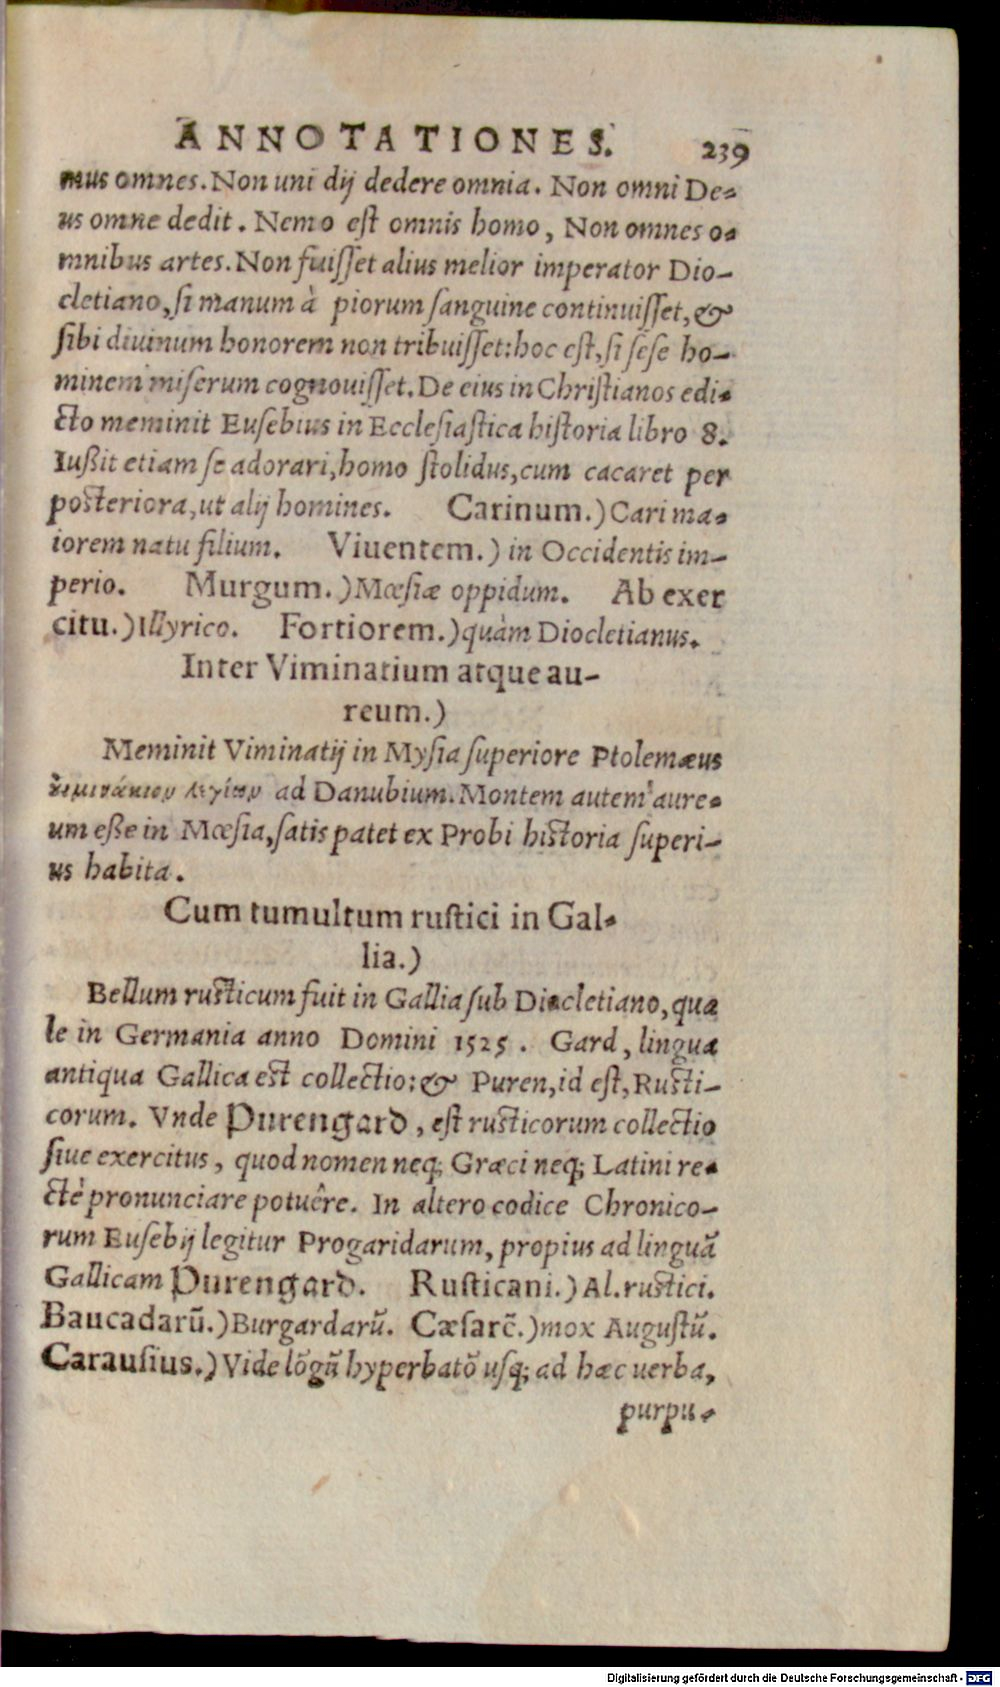 ANNOTATIONES. 239
mus omnes. Non uni dij dedere omnia. Non omni De-
us omne dedit. Nemo eſt omnis homo, Non omnes o-
mnibus artes. Non fuiſſet alius melior imperator Dio-
cletiano, ſi manum à piorum ſanguine continuiſſet, &
ſibi diuinum honorem non tribuiſſet: hoc eſt, ſi ſeſe ho-
minem miſerum cognouiſſet. De eius in Chriſtianos edi-
cto meminit Euſebius in Eccleſiaſtica hiſtoria libro 8.
Iußit etiam ſe adorari, homo ſtolidus, cum cacaret per
poſteriora, ut alij homines. Carinum.) Cari ma-
iorem natu filium. Viuentem.) in Occidentis im-
perio. Murgum.) Mœſiæ oppidum. Ab exer
citu.) Illyrico. Fortiorem.) quàm Diocletianus.
Inter Viminatium atque au-
reum.)
Meminit Viminatij in Myſia ſuperiore Ptolemæus
ad Danubium. Montem autem aure-
um eße in Mœſia, ſatis patet ex Probi hiſtoria ſuperi-
us habita.
Cum tumultum ruſtici in Gal-
lia.)
Bellum ruſticum fuit in Gallia ſub Diocletiano, qua
le in Germania anno Domini 1525. Gard, lingua
antiqua Gallica eſt collectio: & Puren, id eſt, Ruſti-
corum. Vnde Purengard, eſt ruſticorum collectio
ſiue exercitus, quod nomen neq; Græci neq; Latini re-
ctè pronunciare potuêre. In altero codice Chronico-
rum Euſebij legitur Progaridarum, propius ad linguã
Gallicam Purengard. Ruſticani.) Al. ruſtici.
Baucadarũ.) Burgardarũ. Cæſarẽ.) mox Auguſtũ.
Carauſius.) Vide lõgũ hyperbatõ uſq; ad hæc uerba,
purpu-
Digitalisierung gefördert durch die Deutsche Forschungsgemeinschaft - DFG